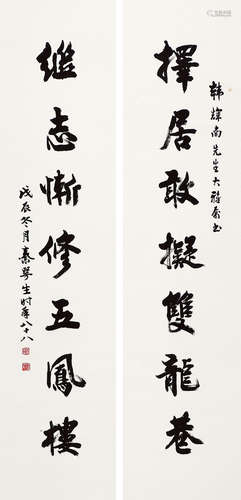 韩炜南先生大雅属书
擇居敢擬雙龍巷
繼志慚修五鳳樓
戊辰冬月秦咢生时年八十八